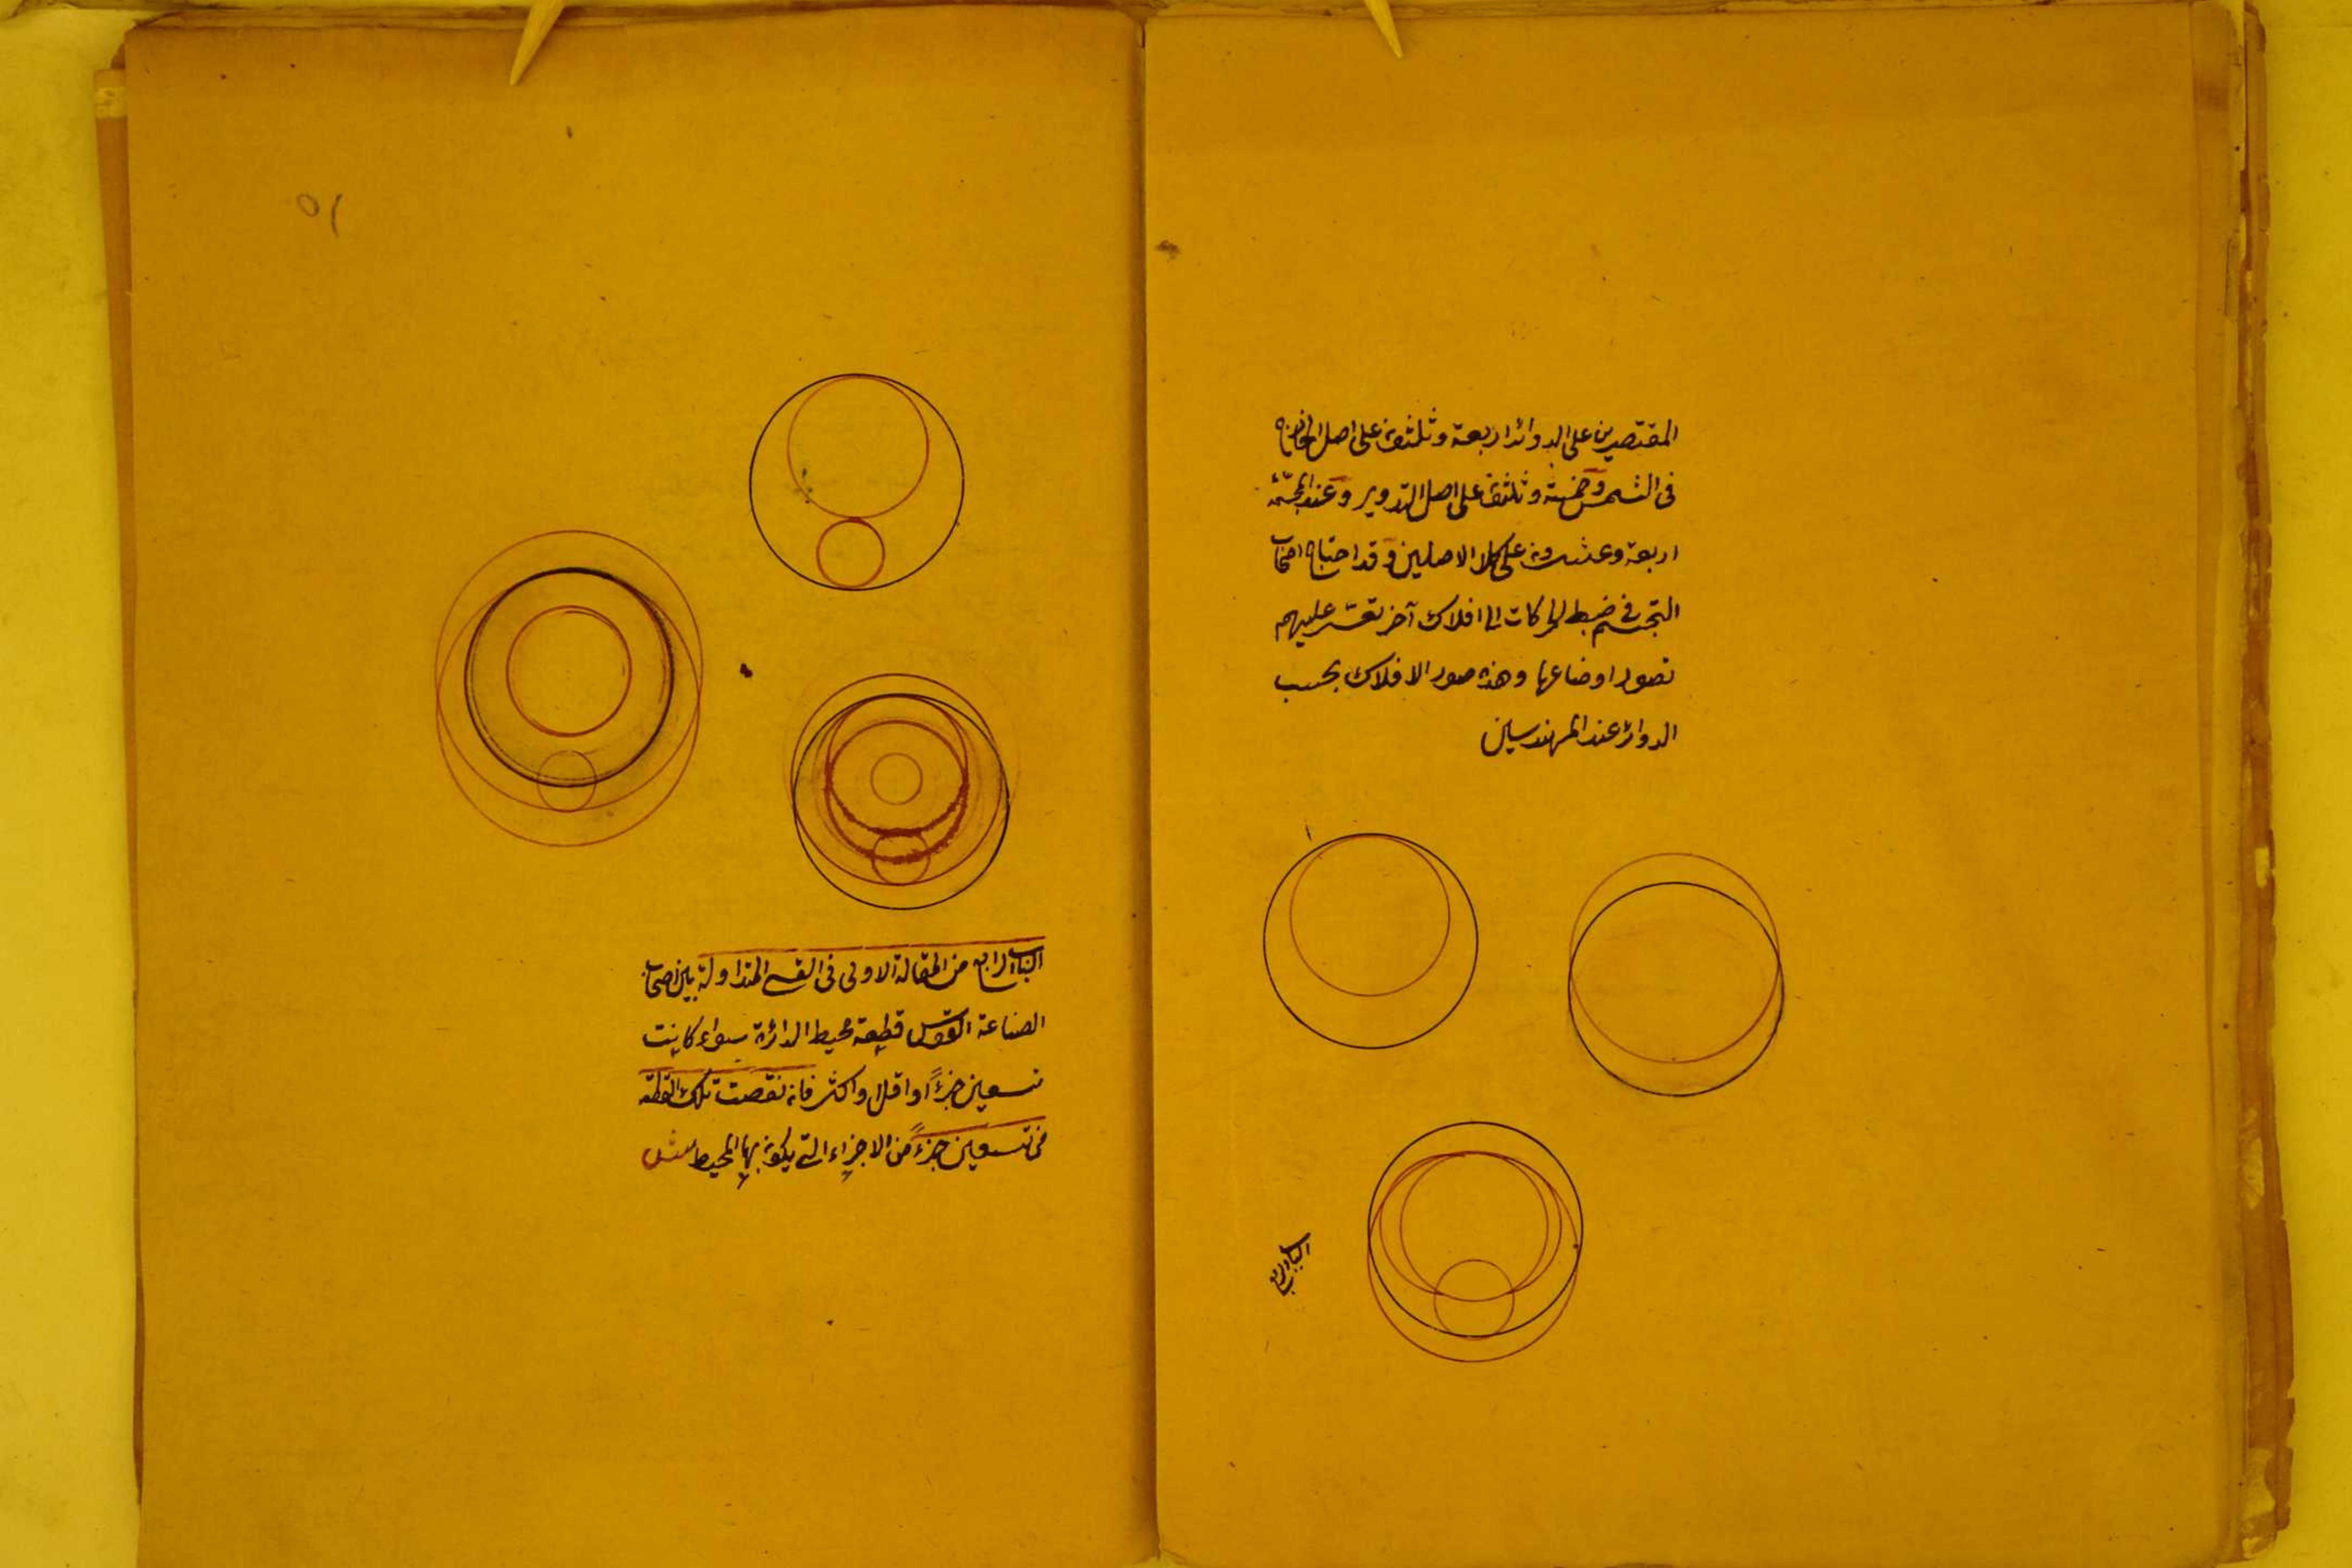 المقتصرين على الدوائر اربعة وثلثون على اصل الخارج
فى الشمس وخمسة وثلثون على اصل التدوير وعند المجسّمة
اربعة وعشرون على كلا الاصلين وقد احتاج اصحاب
التجسّم فى ضبط الحركات الى افلاك آخر تعسّر عليهم
تصور اوضاعها وهذه صور الافلاك بحسب
الدوائر عند المهندسين
الباب الرابع
٥١
الباب الرابع من المقالة الاولى فى القسى المتداولة بين اصحاب
الصناعة القوس قطعة محيط الدائرة سواء كانت
تسعين جزءً او اقل او اكثر فان نقصت تلك القطعة
من تسعين جزءً من الاجزاء التى يكون بها المحيط